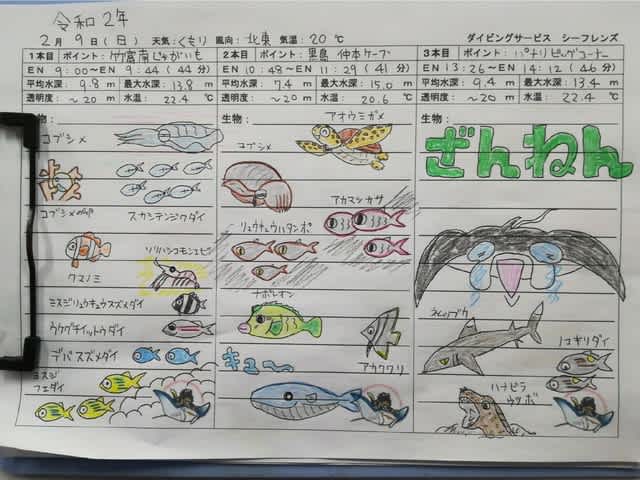 令和2年
2月 9日(日) 天気:くもり 風向:北東 気温:20℃ ダイビングサービス シーフレンズ
1本目 ポイント:竹富南じゃがいも
EN 9:00〜EN 9:44(44分)
平均水深: 9.8m 最大水深: 13.8m
透明度: 〜20m 水温: 22.4℃
生物:
コブシメ
コブシメの卵
スカシテンジクダイ
クマノミ
ソリハシコモンエビ
ミスジリュウキュウスズメダイ
ウケグチイットウダイ
デバスズメダイ
ヨスジ
フエダイ
2本目 ポイント:黒島 仲本ケーブ
EN 10:48〜EN 11:29(41分)
平均水深: 7.4m 最大水深: 15.0m
透明度: 〜20m 水温: 20.6℃
生物:
アオウミガメ
コブシメ
アカマツカサ
リュウキュウハタンポ
ナポレオン
キュ〜
3本目 ポイント:パナリビッグコーナー
EN 13:26〜EN 14:12(46分)
平均水深: 9.4m 最大水深: 13.4m
透明度: 〜20m 水温: 22.4℃
生物:
ざんねん
ノコギリダイ
ハナビラ
ウツボ